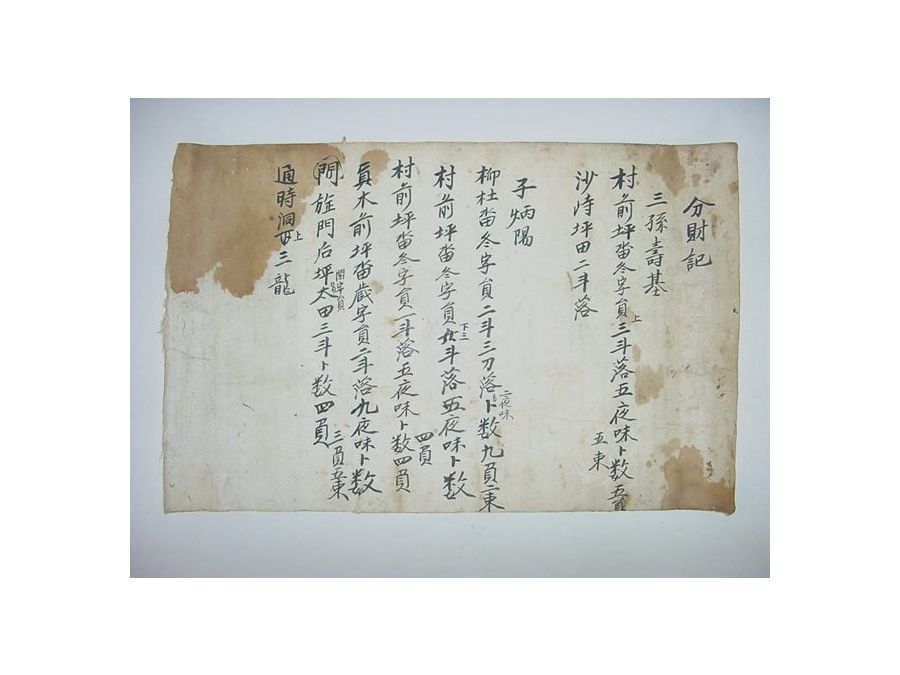 分財記
三孫壽基
村前坪畓冬字員上三斗落五夜味卜数五員
五束
沙峙坪田二斗落
子炳陽
柳杜畓冬字員二斗三刀落三夜味卜数九員二束
村前坪畓冬字員下三斗落五夜味卜数
四員
村前坪畓冬字員一斗落五夜味卜数四員
員木前坪畓歲字員二斗落九夜味卜数
三員五束
閏字員
旋門后坪太田三斗卜数四員
通時洞上三龍